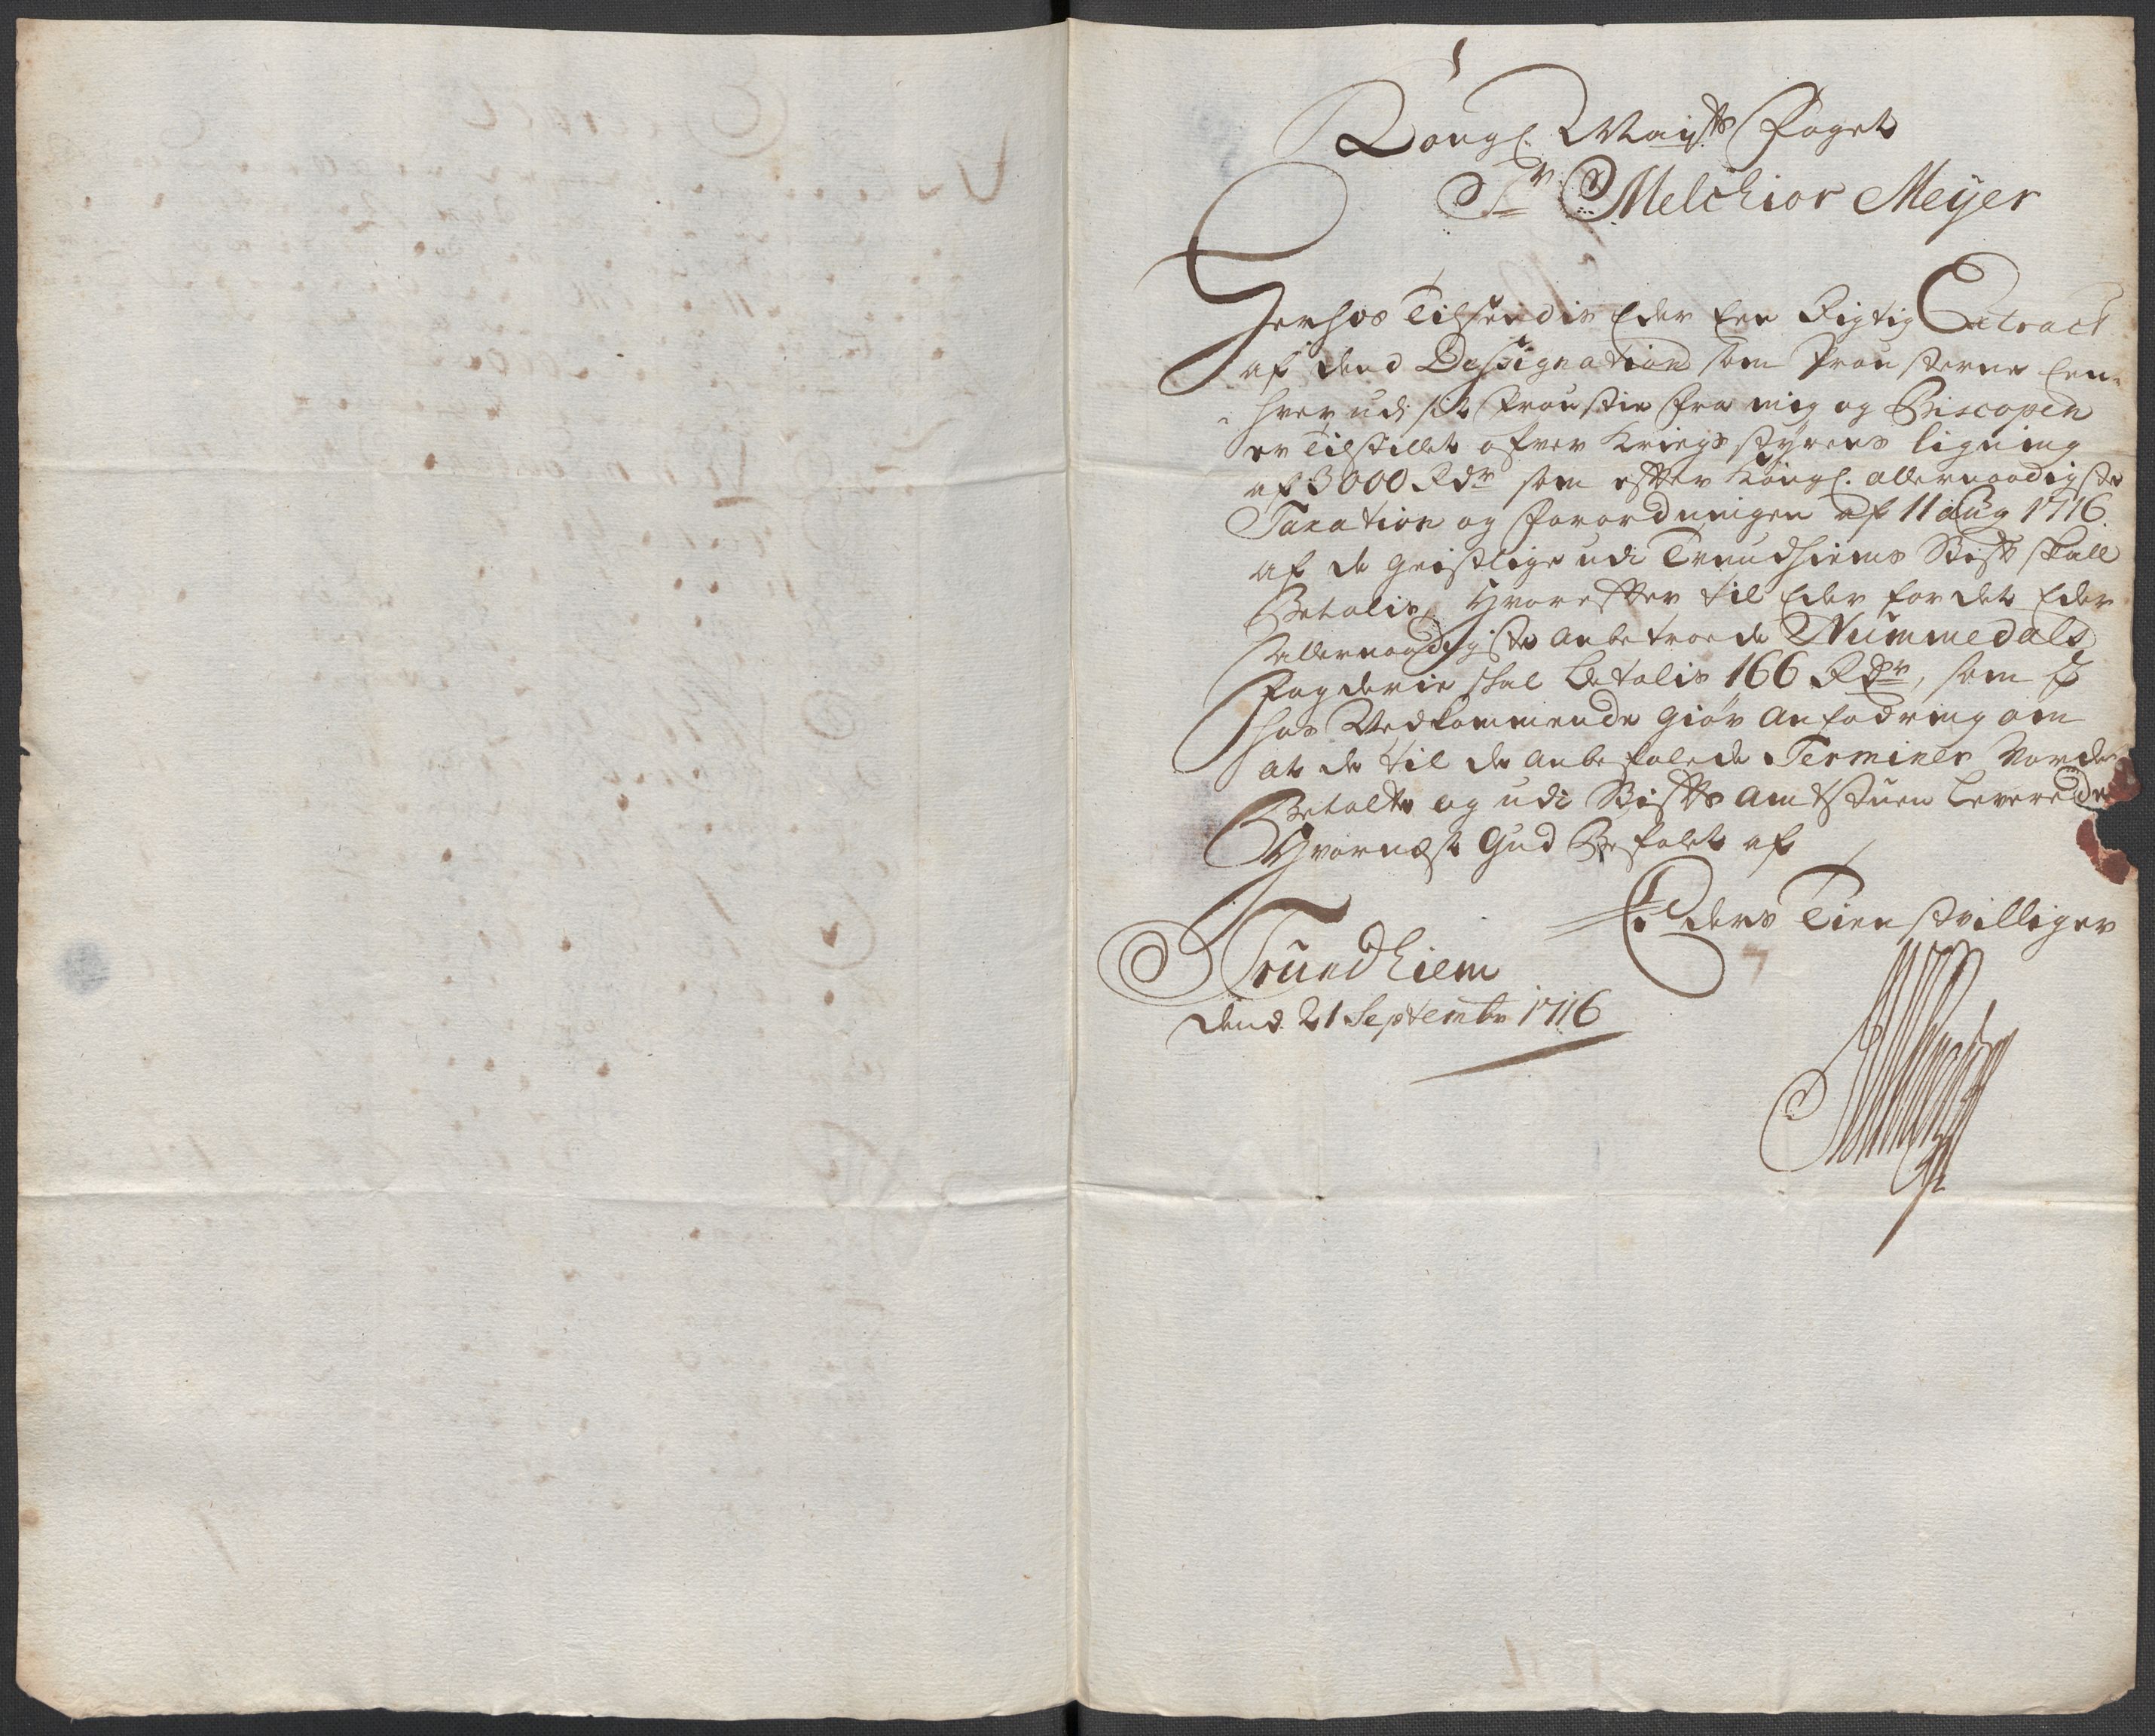 Kongl. Mayts Foget
Sr Melchior Meÿer
Herhos Tilsendis Eder Een Rigtig Extract
af dend Dessignation som Prousterne Een-
hver udi sit Proustie fra mig og Biscopen
er Tilstillet ofver Kriegs styrens ligning
af 3000 Rdr som efter Kongl. allernaadigste
Taxation og forordningen af 11 aug 1716.
af de geistlige udi Trundhiems Stift skall
Betalis, Hvorefter til Eder for det Eder
allernaadigste anbetroede Nummedals
fogderie skal Betalis 166 Rdr, som I
hos Vedkommende giør anfodring om
at de til de anbefalede Terminer vorde
Betalte og udi Stifts amtstuen leverede
Hvornæst Gud Befalet af
Eders Tienstvilliger
Trundhiem
dend 21 Septembr 1716